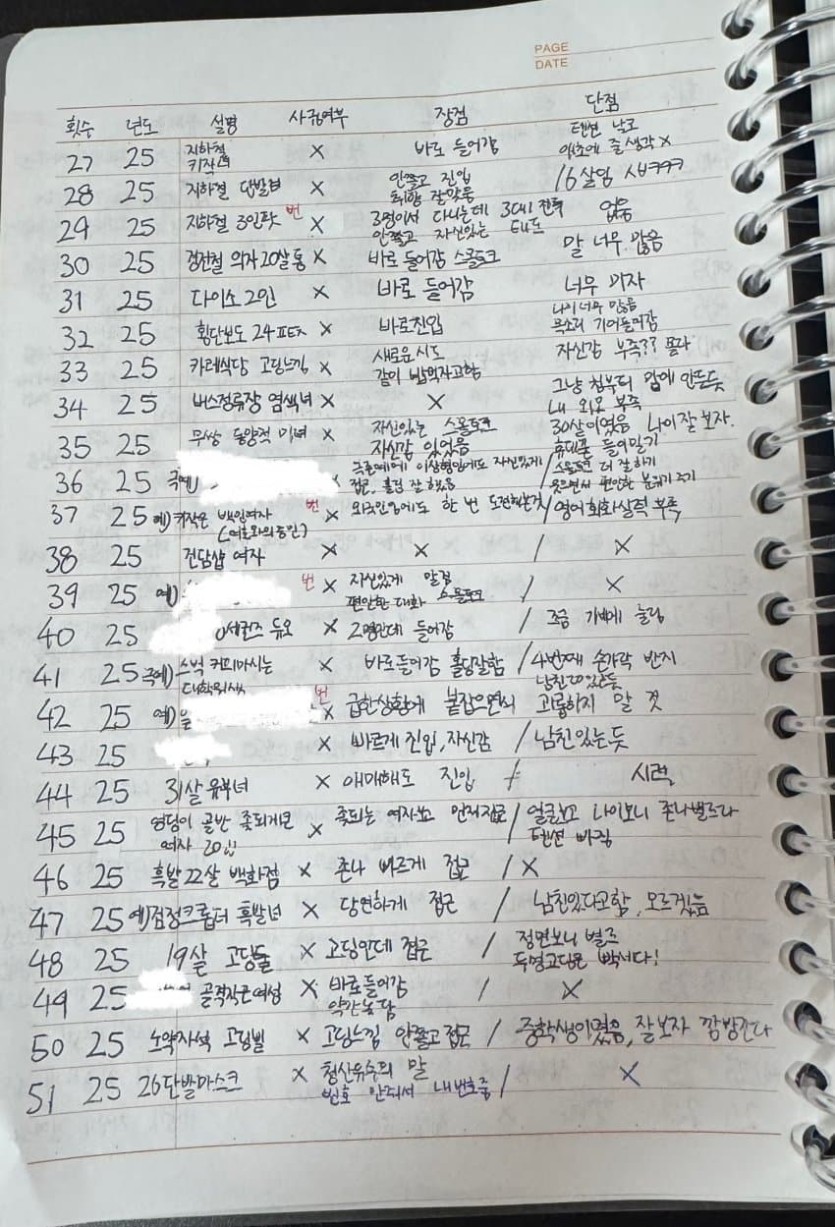 PAGE
DATE
횟수 년도 설명 사귐여부 장점 단점
27 25 지하철 키작녀 × 바로 들어감 텐션 낮고 애초에 줄 생각 ×
28 25 지하철 단발녀 × 안쫄고 진입 /6살임
29 25 지하철 3인팟 번 × 3명이서 다니는데 3대1 전투 없음
안쫄고 자신있는 태도
30 25 경전철 의자 20살 통 × 바로 들어감 스몰토크 말 너무 많음
31 25 다이소 2인 × 바로 들어감 너무 과자
32 25 횡단보도 24 × 바로진입 나이 너무 많음
목소리 기어들어감
33 25 카레식당 고딩느낌 × 새로운 시도 자신감 부족??
같이 밥먹자고함
34 25 버스정류장 염색녀 × × 그냥 첨부터 맘에 안든듯
내 외모 부족
35 25 무쌍 동양적 미녀 × 자신있는 스몰토크 30살이였음 나이 잘 보자.
자신감 있었음 휴대폰 들이밀기
36 25 극예) 극존예에 이상형임에도 자신있게 /스몰토크 더 잘 하기
접근, 플러팅 잘 했음 웃으면서 편안한 분위기 주기
37 25 예) 키작은 백인여자 번 × 외국인임에도 한 번 도전했는것 /영어회화실력 부족
38 25 전담샵 여자 × × / ×
39 25 예) 번 × 자신있게 말검 / ×
편안한 대화 스몰토크
40 25 듀오 × 2명인데 들어감 / 조금 기세에 눌림
41 25 극예) 스벅 커피마시는 × 바로들어감 할당말함 /4번째 손가락 반지
대학원생 남친있는듯
42 25 예) 번 × 급한상황에 붙잡으면서 괴롭히지 말 것
43 25 × 바르게 진입, 자신감 /남친있는듯
44 25 31살 유부녀 × 애매해도 진입 / 시력
45 25 엉덩이 골반 족되게큰 × 족되는 여자보고 먼저접근 /얼굴보고 나이보니 존나별로다
여자 20 텐션 빠짐
46 25 흑발 22살 백화점 × 존나 빠르게 접근 / ×
47 25 예) 검정크롭티 흑발녀 × 당연하게 접근 / 남친있다고함, 모르겠음
48 25 19살 고딩들 × 고딩인데 접근 / 정면보니 별로
두명고딩은 빡세다!
49 25 골격작은여성 × 바로들어감 / ×
약간농담
50 25 노약자석 고딩삘 × 고딩느낌 안쫄고접근 / 중학생이였음, 잘보자 깜빵간다
51 25 26단발마스크 × 청산유수의 말 / ×
번호 안줘서 내번호줌